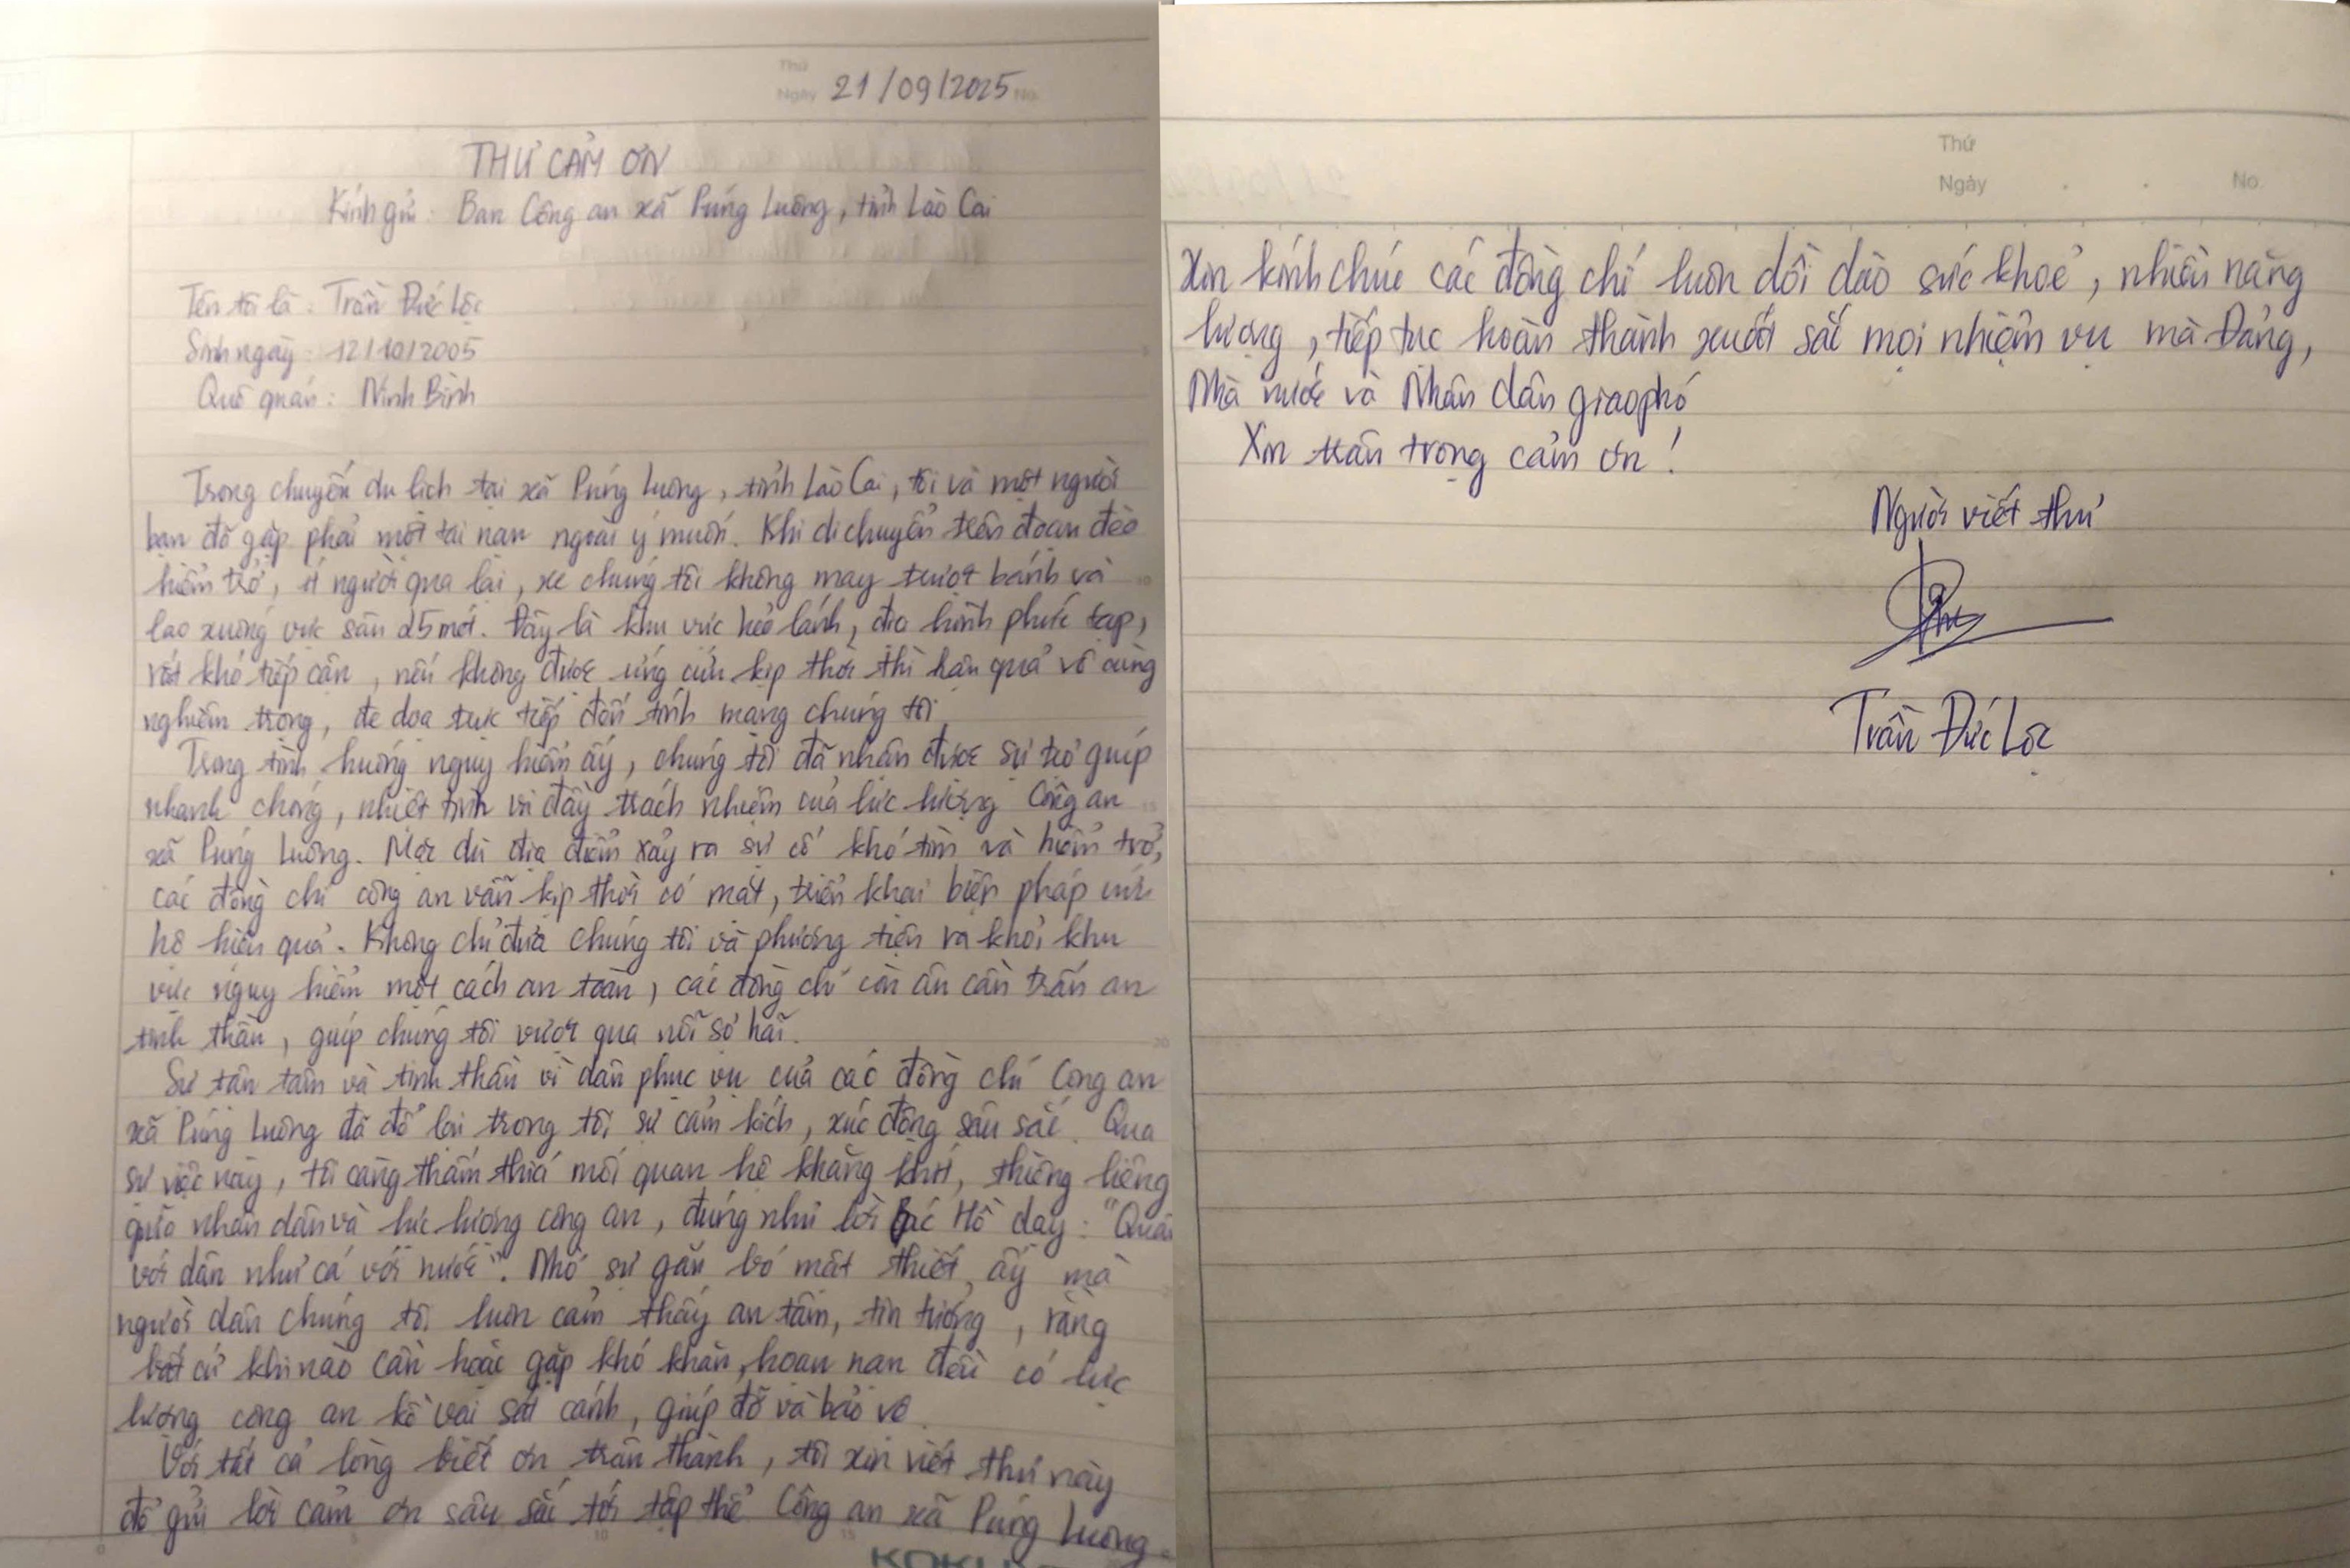 Thứ
Ngày 21/09/2025 No.
THƯ CẢM ƠN
Kính gửi: Ban Công an xã Púng Luông, tỉnh Lào Cai
Tên tôi là: Trần Đức Lộc
Sinh ngày: 12/10/2005
Quê quán: Ninh Bình
Trong chuyến du lịch tại xã Púng Luông, tỉnh Lào Cai, tôi và một người
bạn đã gặp phải một tai nạn ngoài ý muốn. Khi di chuyển trên đoạn đèo
hiểm trở, ít người qua lại, xe chúng tôi không may trượt bánh và
lao xuống vực sâu 25 mét. Đây là khu vực hẻo lánh, địa hình phức tạp,
rất khó tiếp cận, nếu không được ứng cứu kịp thời thì hậu quả vô cùng
nghiêm trọng, đe dọa trực tiếp đến tính mạng chúng tôi
Trong tình huống nguy hiểm ấy, chúng tôi đã nhận được sự trợ giúp
nhanh chóng, nhiệt tình và đầy trách nhiệm của lực lượng Công an
xã Púng Luông. Mặc dù địa điểm xảy ra sự cố khó tìm và hiểm trở,
các đồng chí công an vẫn kịp thời có mặt, triển khai biện pháp cứu
hộ hiệu quả. Không chỉ đưa chúng tôi và phương tiện ra khỏi khu
vực nguy hiểm một cách an toàn, các đồng chí còn ân cần trấn an
tinh thần, giúp chúng tôi vượt qua nỗi sợ hãi.
Sự tận tâm và tinh thần vì dân phục vụ của các đồng chí Công an
xã Púng Luông đã để lại trong tôi sự cảm kích, xúc động sâu sắc. Qua
sự việc này, tôi càng thấm thía mối quan hệ khăng khít, thiêng liêng
giữa nhân dân và lực lượng công an, đúng như lời Bác Hồ dạy: "Quân
với dân như cá với nước". Nhờ sự gắn bó mật thiết ấy mà
người dân chúng tôi luôn cảm thấy an tâm, tin tưởng, rằng
bất cứ khi nào cần hoặc gặp khó khăn, hoạn nạn đều có lực
lượng công an kề vai sát cánh, giúp đỡ và bảo vệ.
Với tất cả lòng biết ơn trân thành, tôi xin viết thư này
để gửi lời cảm ơn sâu sắc tới tập thể Công an xã Púng Luông
Thứ
Ngày No.
Xin kính chúc các đồng chí luôn dồi dào sức khoẻ, nhiều năng
lượng, tiếp tục hoàn thành xuất sắc mọi nhiệm vụ mà Đảng,
Nhà nước và Nhân dân giao phó
Xin trân trọng cảm ơn!
Người viết thư
Trần Đức Lộc